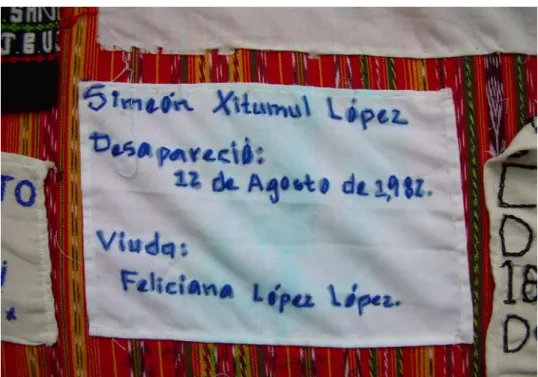 Simeón Xitumul López
Desapareció:
12 de Agosto de 1,982.
Viuda:
Feliciana López López.
TO
D
18
D